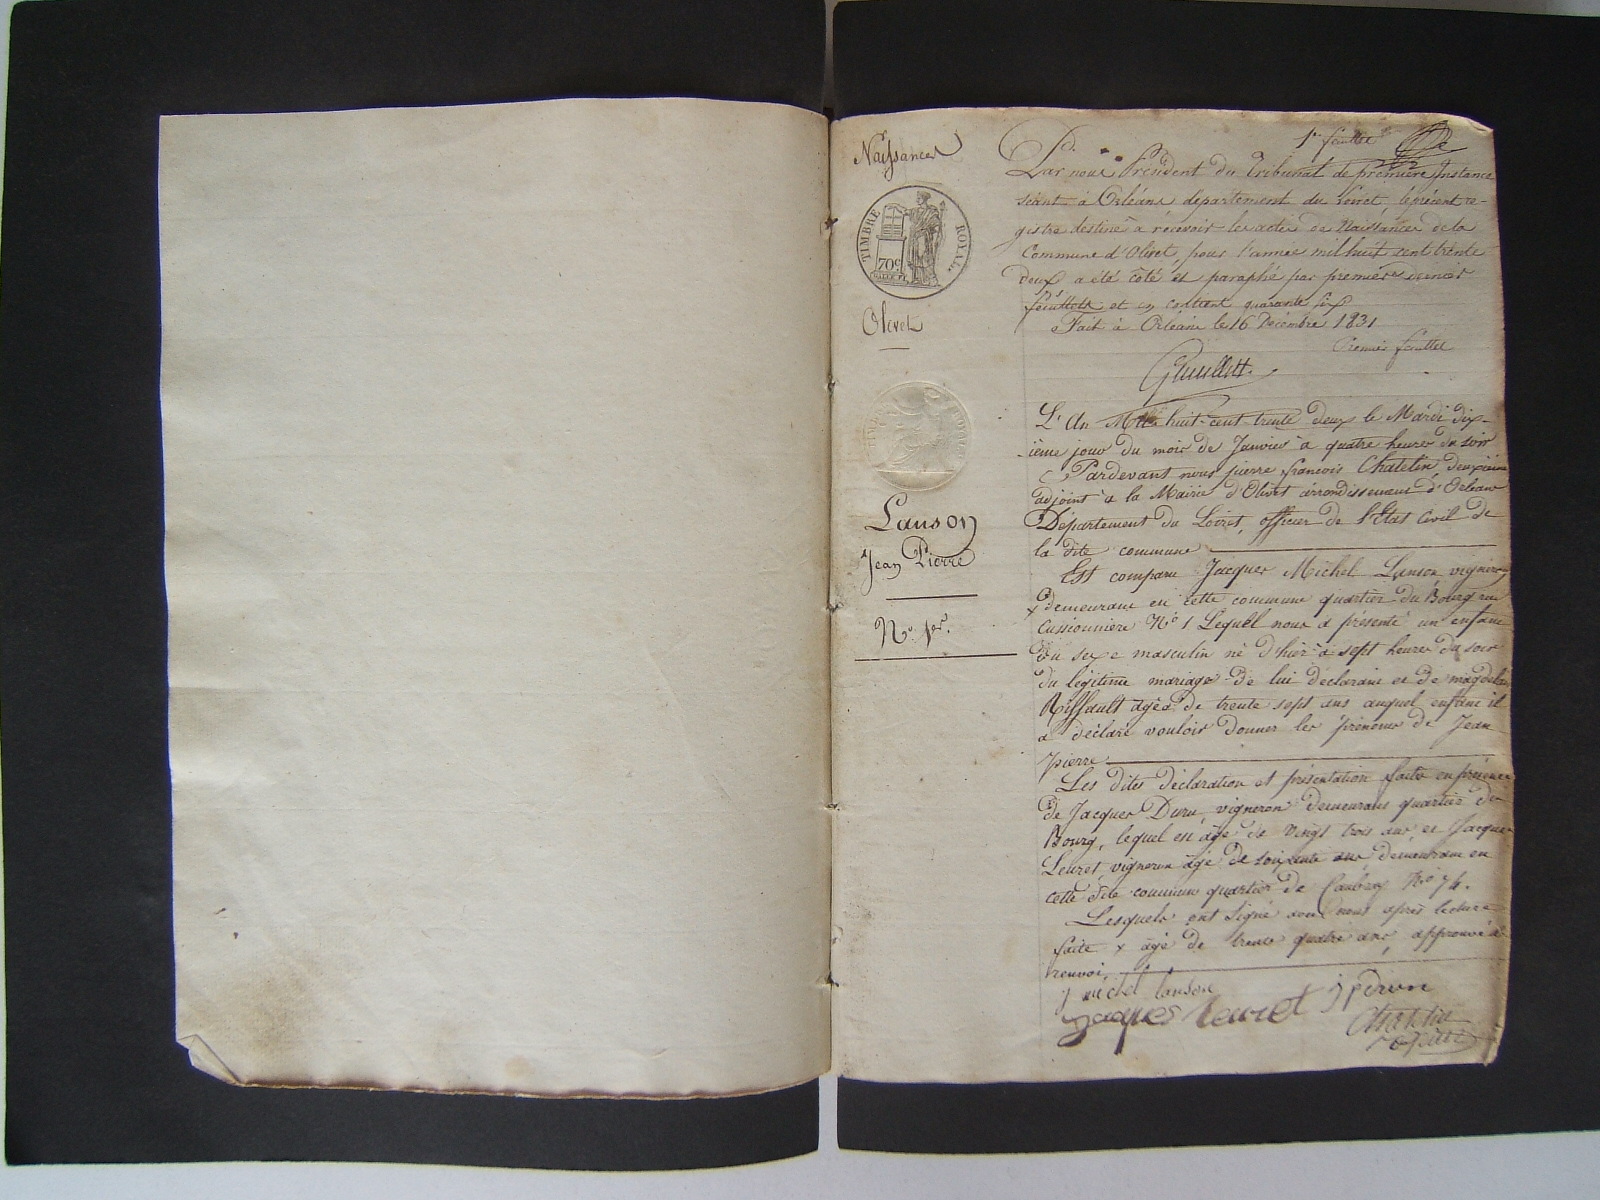 Naissances
TIMBRE ROYAL
70c
Olivet
1er feuillet
Par nous Président du Tribunal de première Instance
séant à Orléans département du Loiret, le présent re-
gistre destiné à recevoir les actes de Naissances de la
Commune d'Olivet, pour l'année mil huit cent trente
deux a été coté et paraphé par premier et dernier
feuillets et en contient quarante six
Fait à Orléans le 16 Décembre 1831
Premier feuillet
Lanson
Jean Pierre
No. 1er.
L'An Mil huit cent trente deux le Mardi dix-
ième jour du mois de Janvier à quatre heures du soir
Pardevant nous pierre françois Chatelin, deuxième
adjoint à la Mairie d'Olivet arrondissement d'Orléans
Département du Loiret, officier de l'Etat Civil de
la dite commune
Est comparu Jacques Michel Lanson vigneron
x demeurant en cette commune quartier du Bourg rue
No 1 Lequel nous a présenté un enfant
du sexe masculin né d'hier à sept heures du soir
du légitime mariage de lui déclarant et de magdelaine
Riffault agée de trente sept ans auquel enfant il
a déclaré vouloir donner les prénoms de Jean
pierre
Les dites déclaration et présentation faites en présence
de Jacques Duru, vigneron demeurant quartier du
Bourg, lequel est âgé de vingt trois ans, et Jacques
Leuret, vigneron âgé de soixante ans demeurant en
cette dite commune quartier de Caubray No 74.
Lesquels ont signé avec nous après lecture
faite x âgé de trente quatre ans, approuvé le
renvoi.
j michel lanson
jacques leuret
Chatelin